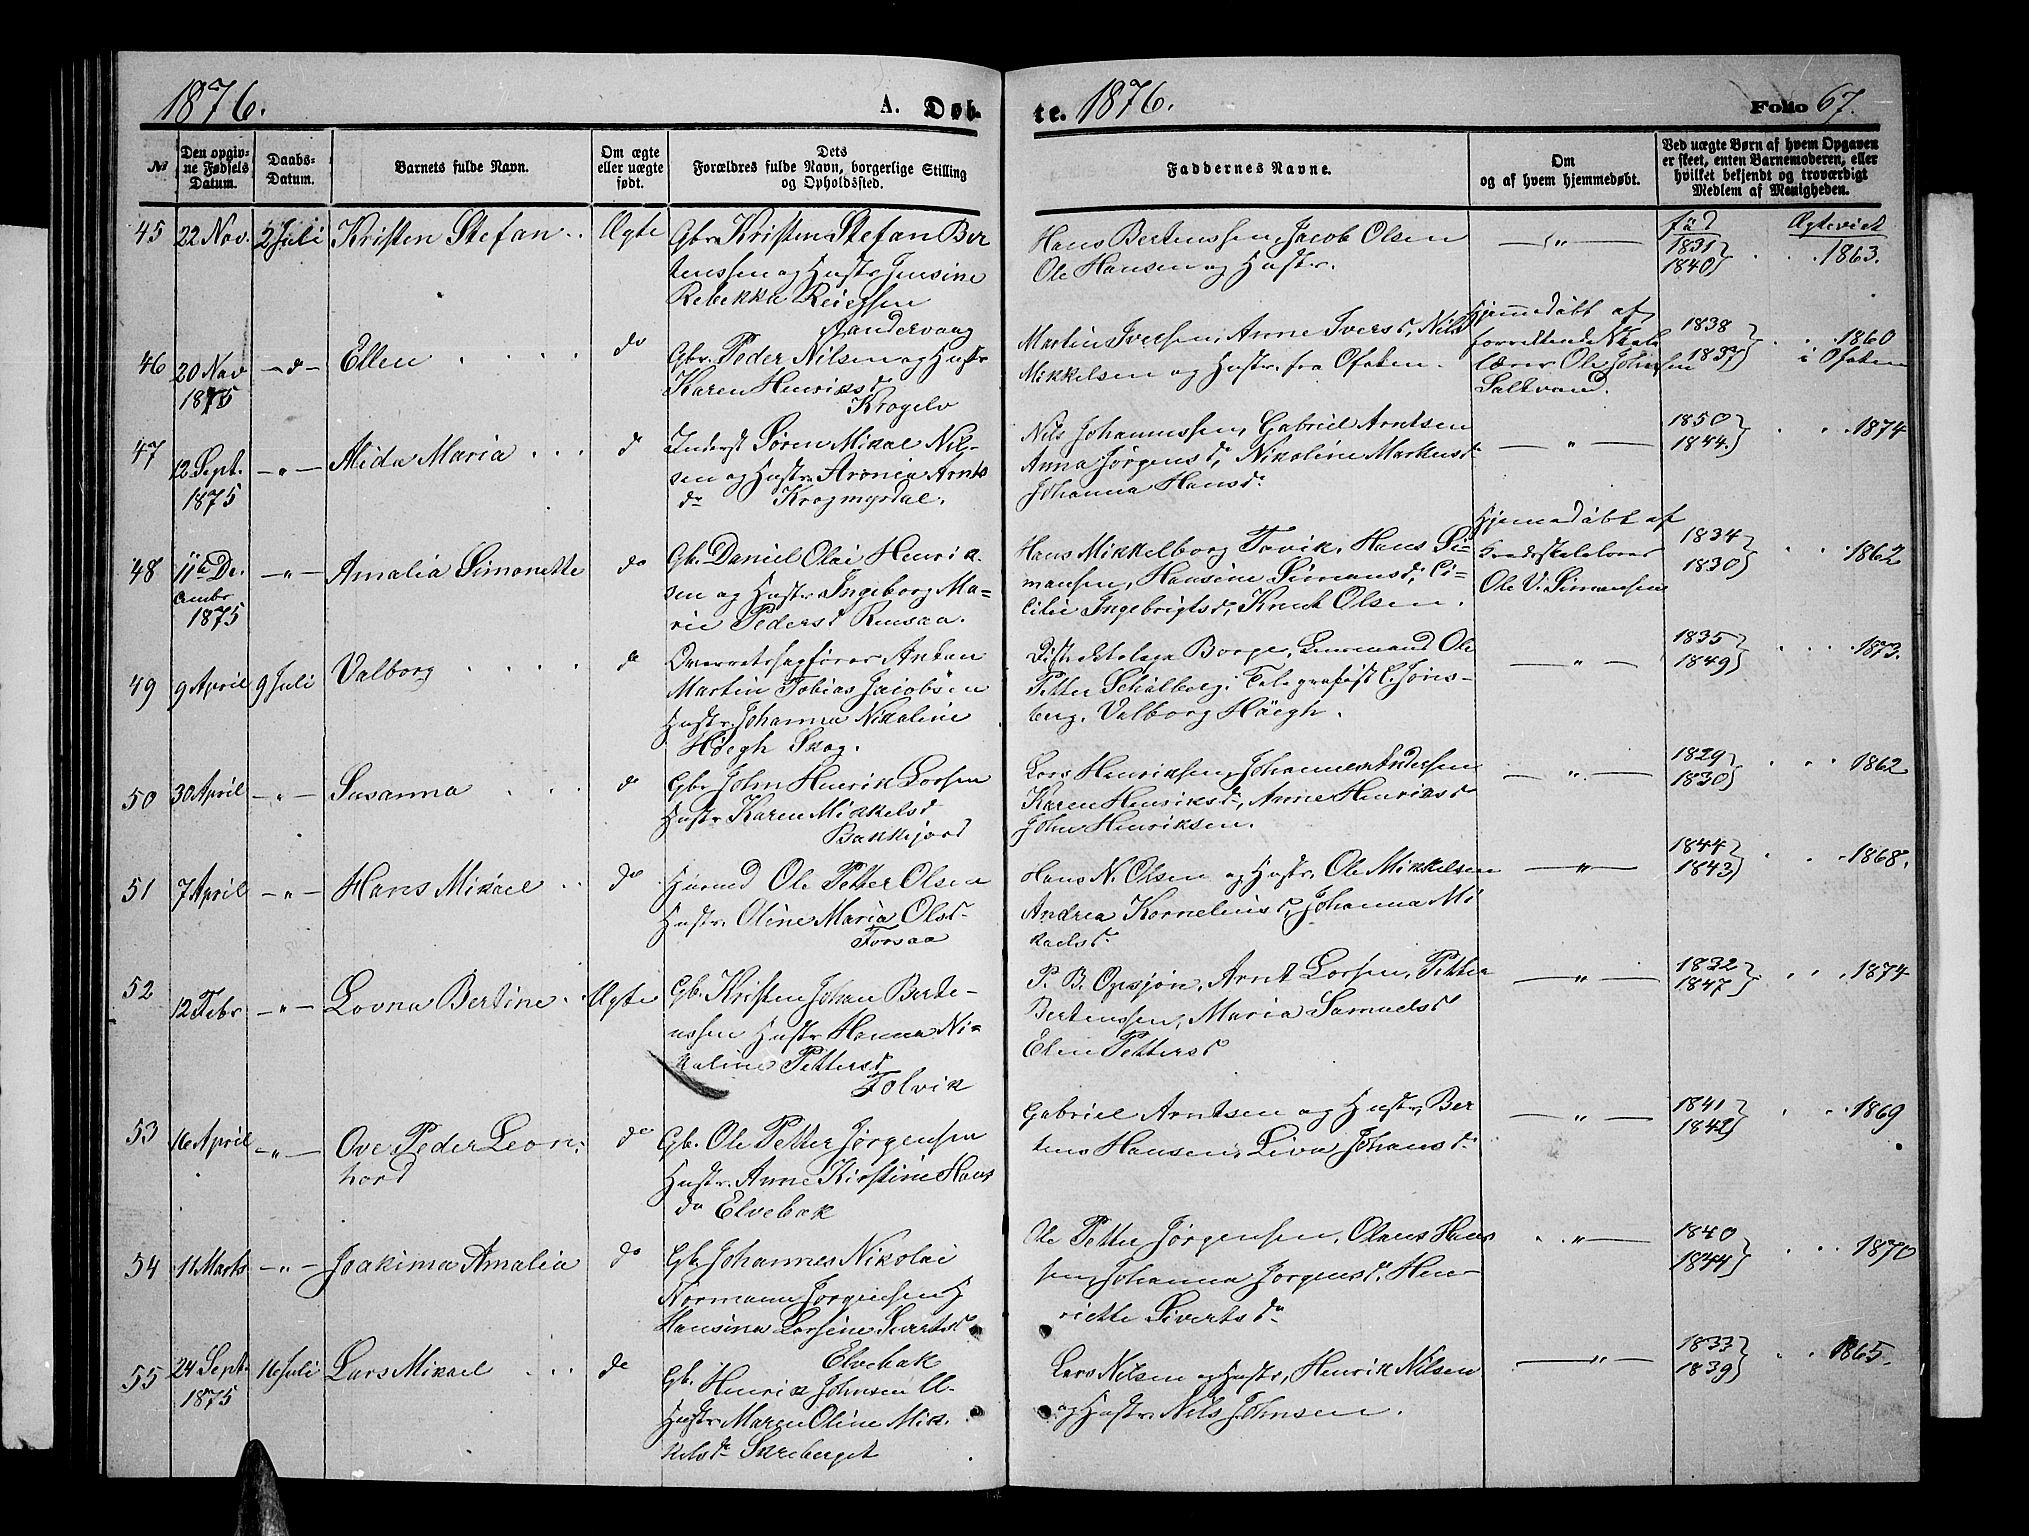 1876.
A. Døb-
te. 1876.
Folio 67.
№
Den opgiv-
ne Fødsels
Datum.
Daabs-
Datum.
Barnets fulde Navn.
Om ægte
eller uægte
født.
Dets
Forældres fulde Navn, borgerlige Stilling
og Opholdssted.
Faddernes Navne.
Om
og af hvem hjemmedøbt.
Ved uægte Børn af hvem Opgaven
er skeet, enten Barnemoderen, eller
hvilket bekjendt og troværdigt
Medlem af Menigheden.
45 22 Nov. 2 Juli Kristen Stefan . . Ægte
Gbr. Kristen Stefan Ber
tenssen og Hustr. Jensine
Rebekka
Sandervaag
Hans Bertenssen, Jacob Olsen
Ole Hansen og Hustr.
— " —
fød
1831
1840
Ægteviet
1863.
46 20 Nov 1875 — d — Ellen . . . . do
Gbr. Peder Nilsen og Hustr
Karen Henriksd
Krogelv
Martin Iversen, Anne Iversd, Nils
Mikkelsen og Hustr. fra Ofoten.
Hjemmedøbt af
forrettende Skole
lærer Ole Johnsen
Saltvand.
1838
1837
1860
i Ofoten
47 12 Sept. 1875 — " — Alida Maria . . . d
Inderst Søren Mikal Nil-
sen og Hustr. Aronia Arnts
dr Krogmyrdal.
Nils Johannessen, Gabriel Arntsen
Anna Jørgensd, Nikoline Markusd
Johanna Hansd.
— " —
1850
1844.
1874
48 11te De-
cembr
1875 — " — Amalia Simonette do
Gb. Daniel Olai Henrik-
sen og Hustr. Ingeborg Ma-
rie Pedersd Ramsaa.
Hans Mikkelborg Tovik, Hans Si-
monsen, Hansine Simonsd, Ci-
cilie Ingebrigtsd, Knut Olsen.
Hjemmedøbt af
Ole V. Simonsen
1834
1830
1862
49 9 April 9 Juli Valborg . . . . do
Overretssagfører Anton
Martin Tobias Jacobsen
Hustr. Johanna Nikoline
Høegh Skog.
Borge, Lensmand Ole
Petter Schålborg, Telegrafist C. Jøns-
berg. Valborg Höegh.
— " —
1835
1849
1873.
50 30 April — " — Susanna . . . d
Gbr. John Henrik Larsen
Hustr. Karen Mikkelsd
Bakkejord
Lars Henriksen, Johannes Andersen
Karen Henriksd, Anne Henriksd
John Henriksen.
— " —
1829
1830
1862
51 7 April — " — Hans Mikael . . do
Huusmd Ole Petter Olsen
Hustr. Oline Maria Olsd.
Forsaa
Hans N. Olsen og Hustr. Ole Mikkelsen
Andrea Korneliusd, Johanna Mi
kaelsd.
— " —
1844
1843
1868.
52 12 Febr — " — Lovna Bertine . . Ægte
Gb. Kristen Johan Berte-
nssen Hustr. Hanna Ni-
koline Pettersd
Tolvik
P. B. Opsjøn, Arnt Larsen, Petter
Bertenssen, Maria Samuelsd
Elen Pettersd
— " —
1832
1847
1874
53 16 April — " — Ove Peder Leon-
hard do
Gb. Ole Petter Jørgensen
Hustr. Anne Kirstine Hans
do Elvebak
Gabriel Arntsen og Hustr, Ber
tens Hansen, Liva Johansd.
— " —
1841
1842
1869
54 11 Marts — " — Joakima Amalia do
Gb. Johannes Nikolai
Normann Jørgensen H
Hansina Larsine Sivertsd
Elvebak
Ole Petter Jørgensen, Olaus Han
sen, Johanna Jørgensd, Hen-
riette Sivertsd.
. . " —
1840
1844
1870
55 24 Sept. 1875 16 Juli Lars Mikael . . . do
Gb. Henrik Johnsen U.
Hustr. Maren Oline Mik-
kelsdr Skreberget
Lars Nilsen og Hustr, Henrik Nilsen
og Hustr. Nils Johnsen.
— " —
1833
1839
1865.